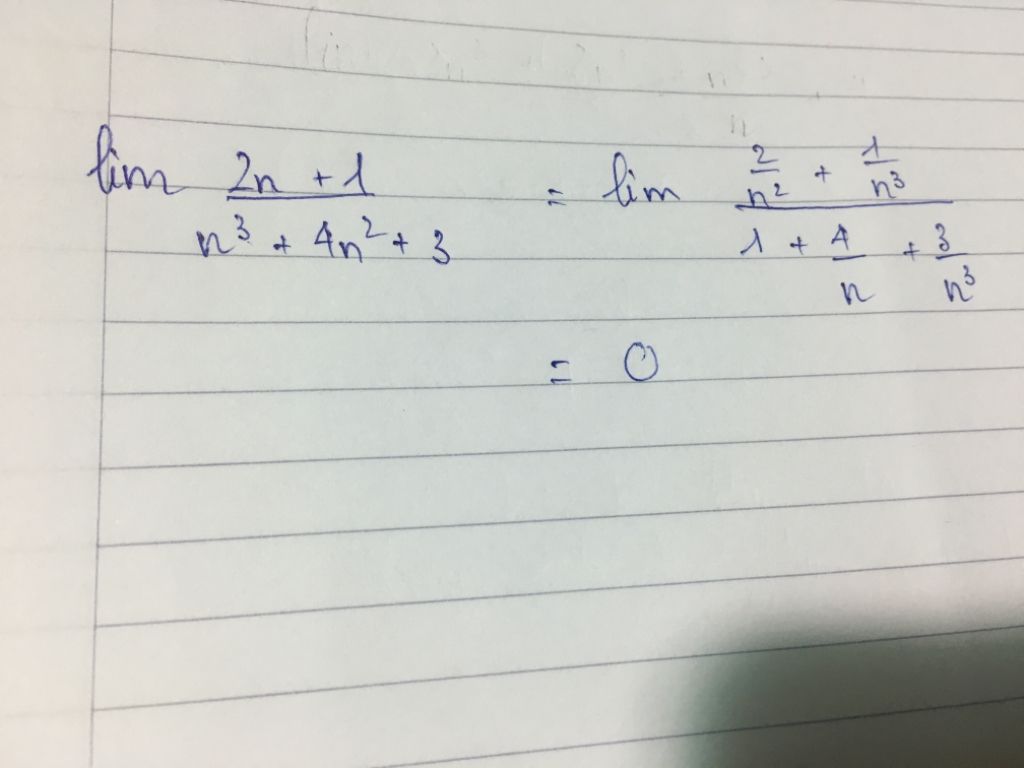 lim (2n + 1)/(n³ + 4n² + 3) = lim (2/n² + 1/n³)/(1 + 4/n + 3/n³)
= 0